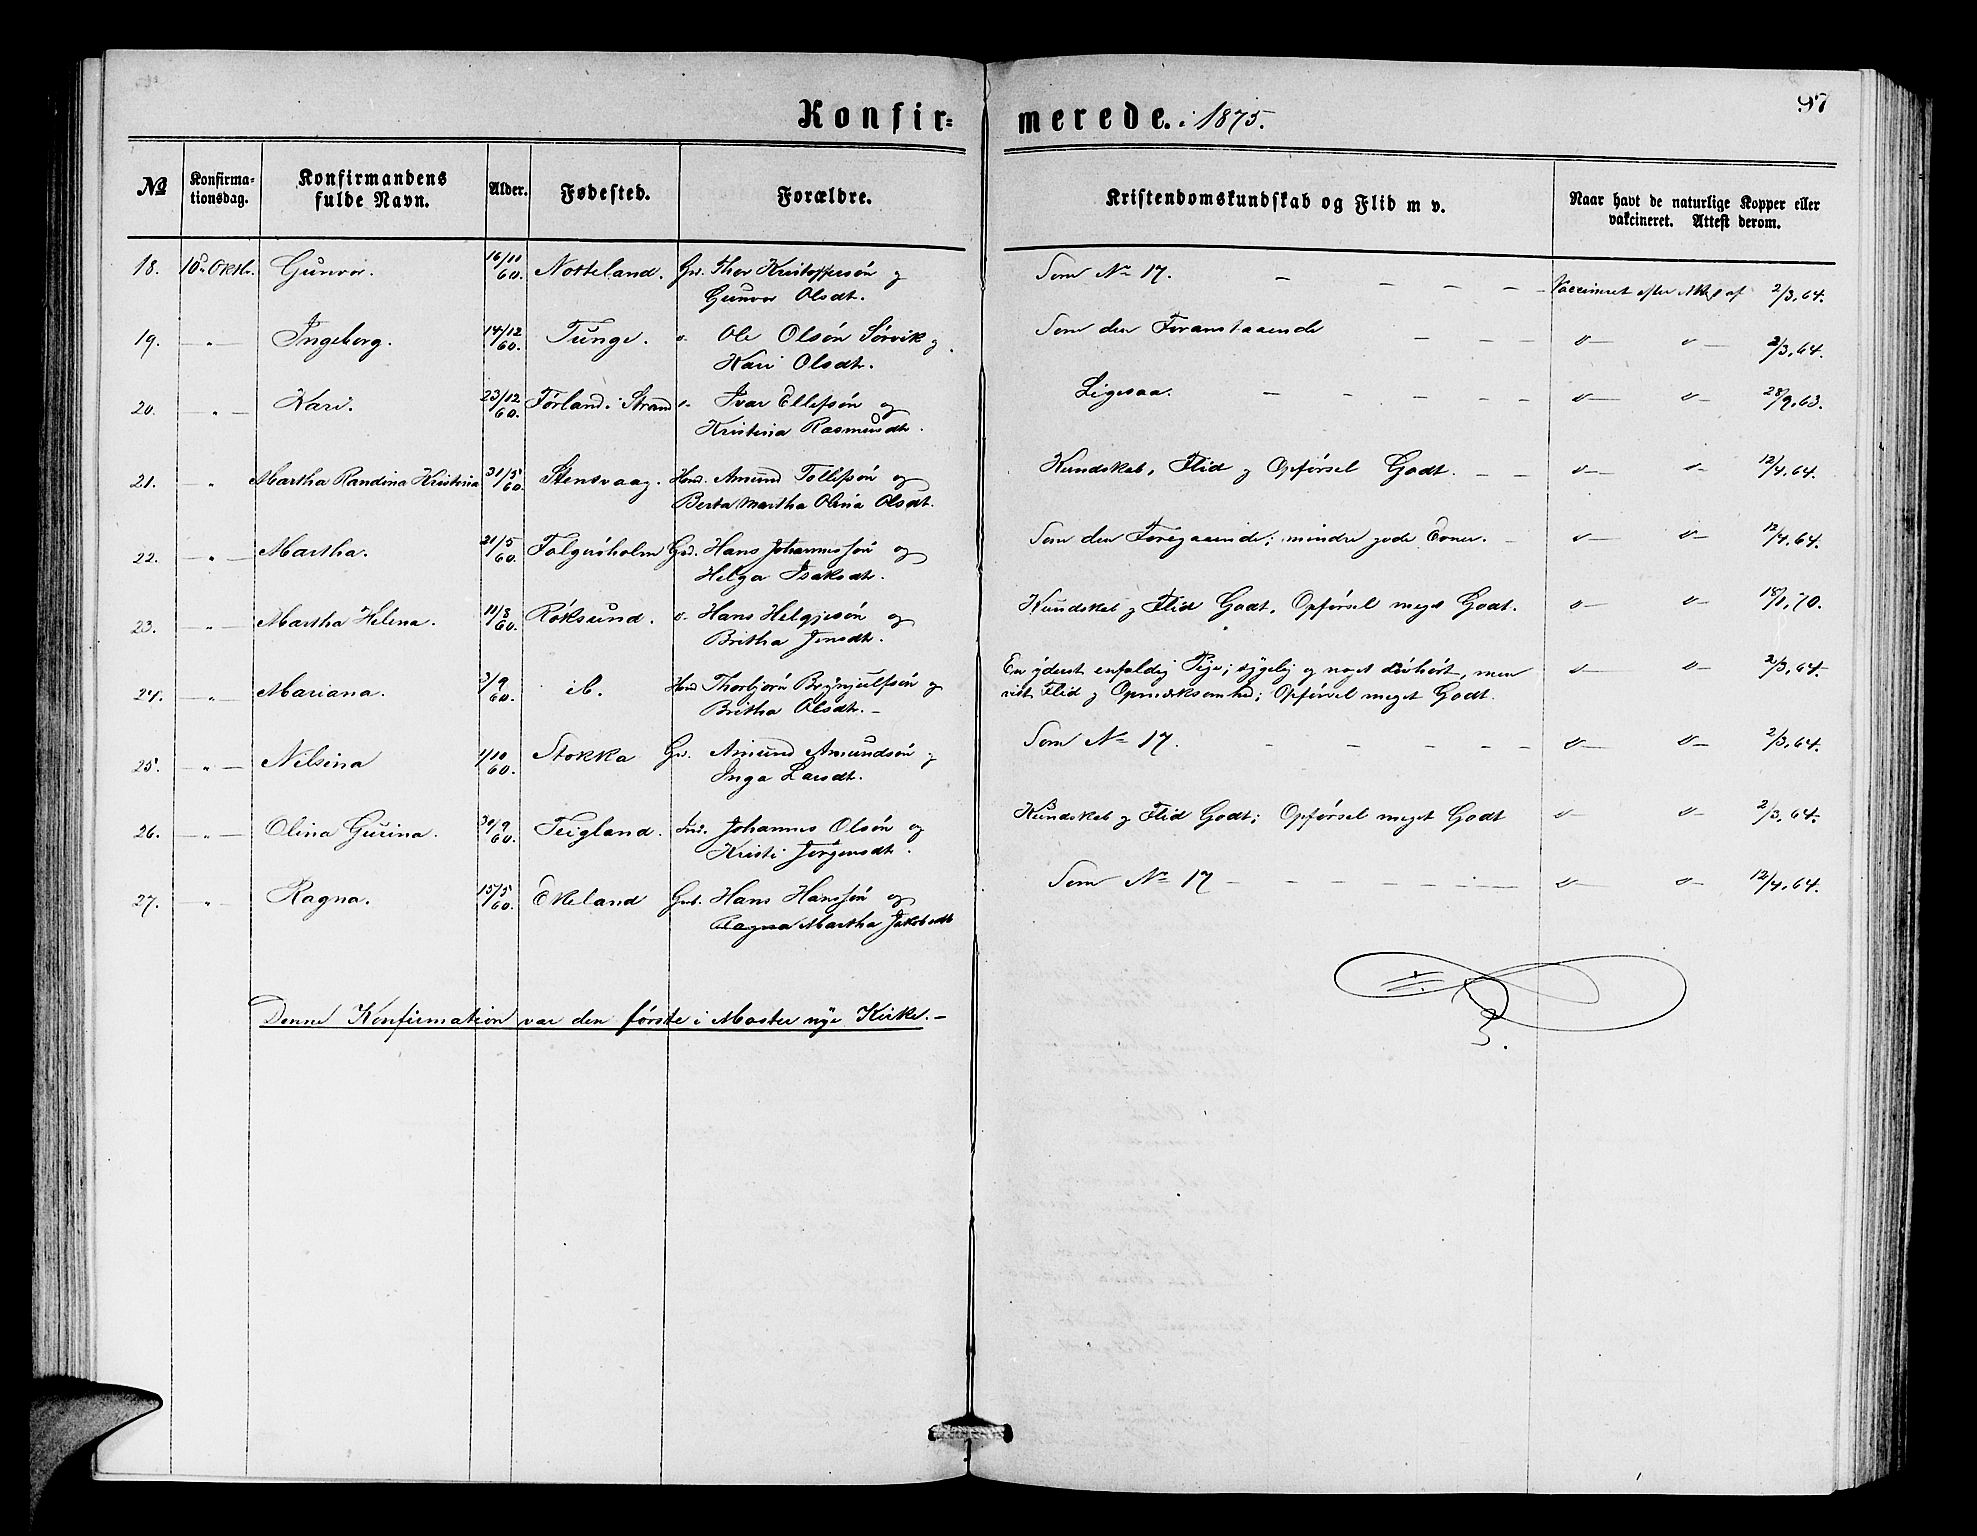 Konfirmerede. i 1875. 97
№ Konfirmationsdag. Konfirmandens fulde Navn. Alder. Fødested. Forældre. Kristendomskundskab og Flid m v. Naar havt de naturlige Kopper eller vakcineret. Attest derom.
18. 10de Oktbr. Gunvor. 16/11 60. Notteland. Gr. Thor Kristoffersön og Som No 17. Vaccineret efter Att. af 2/3, 64.
Gunvor Olsdt.
19. " Ingeborg. 14/12 60. Tunge. o. Ole Olsön Sørvik og Som den Foranstaaende o o 2/3, 64.
Kari Olsdt.
20. " Kari. 23/12 60. Førland i Strand o. Ivar Ellefsön og Ligesaa. o o 28/9, 63.
Kristina Rasmusdt.
21. " Martha Randina Kristina 31/5 60. Stensvaag. Hmd. Amund Tollefsön og Kundskab, Flid og Opførsel Godt. o o 12/4, 64.
Berta Martha Olina Olsdt.
22. " Martha. 21/5 60. Folgerøholm Grd. Hans Johannessön og Som den Foregaaende; mindre gode Evner. o o 12/4, 64.
Helga Isaksdt.
23. " Martha Helena. 11/8 60. Røksund. o. Hans Helgjesön og Kundskab og Flid Godt. Opførsel meget Godt. o o 18/1, 70.
Britha Jensdt.
24. " Mariana. 3/9 60. ib. Hmd Thorbjørn Brynjulfsön og En yderst enfoldig Pige; sygelig og noget døvhørt, men o o 2/3, 64.
Britha Olsdt. vist Flid og Opmærksomhed; Opførsel meget Godt.
25. " Nilsina 1/10 60. Stokka Gr. Amund Amundsön og Som No 17. o o 2/3, 64.
Inga Larsdt.
26. " Olina Gurina. 30/9 60. Teigland. Ind. Johannes Olsön og Kundskab og Flid Godt; Opførsel meget Godt o o 2/3, 64.
Kristi Jørgensdt.
27. " Ragna. 15/5 60. Ekeland Grb. Hans Hanssön og Som No 17 o o 12/4, 64.
Ragna Martha Jakobsdt
Denne Konfirmation var den første i Moster nye Kirke.